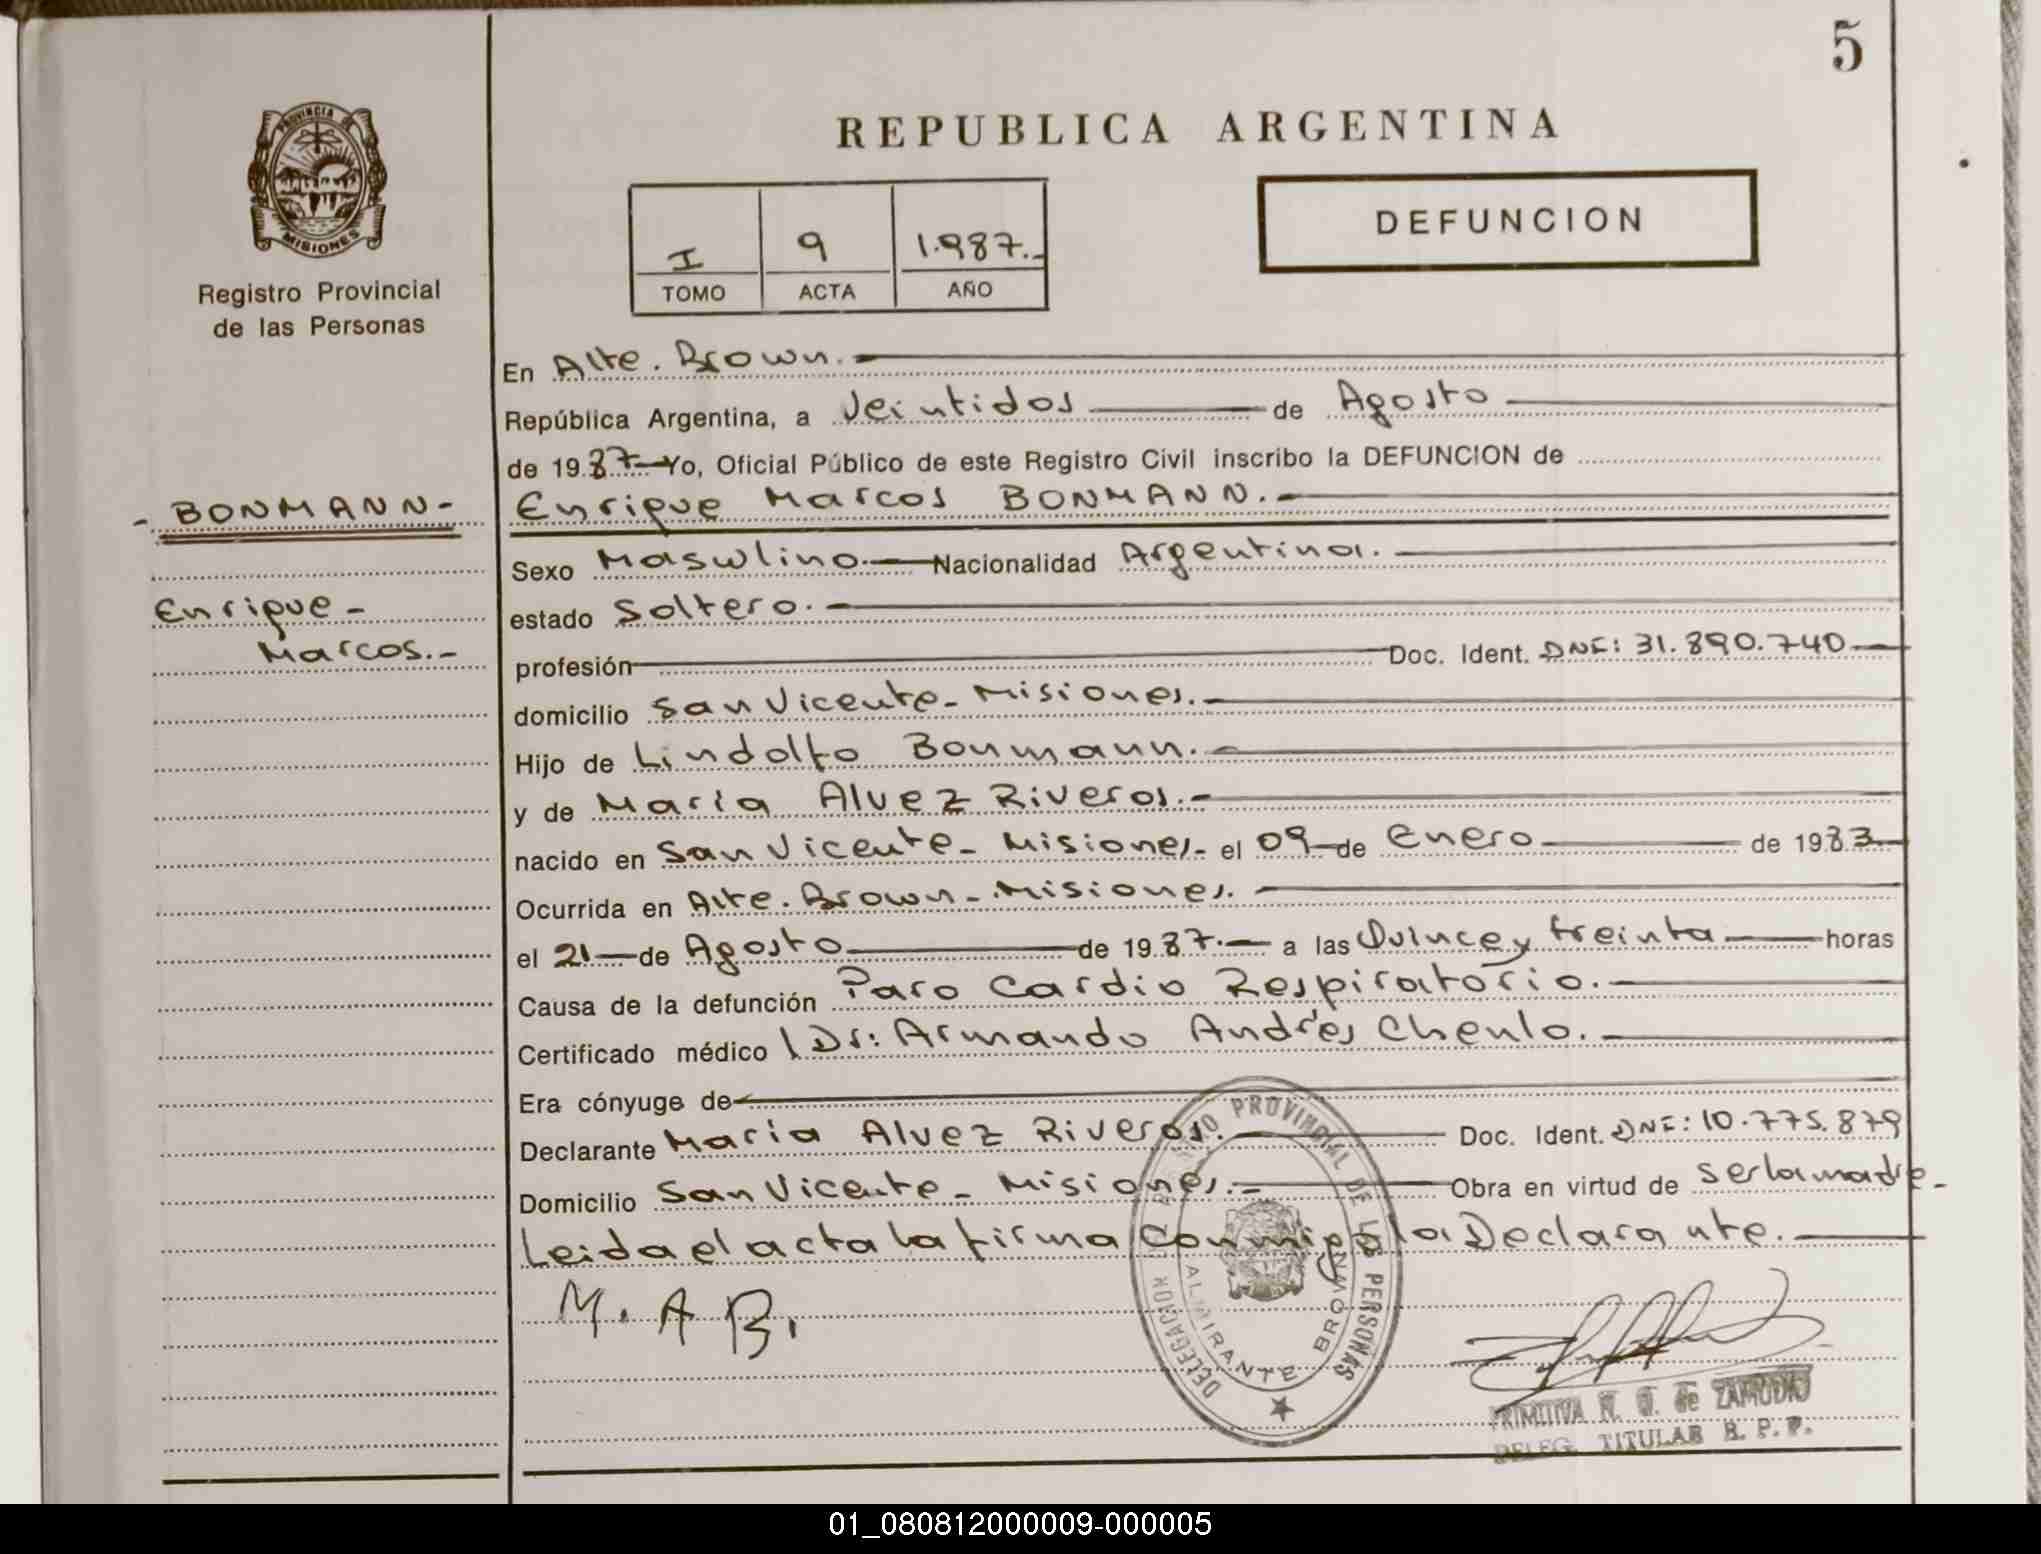 5
REPUBLICA ARGENTINA
PROVINCIA DE
MISIONES
DEFUNCION
I 9 1.987.-
TOMO ACTA AÑO
Registro Provincial
de las Personas
En Alte. Brown.-
República Argentina, a Veintidos de Agosto
de 1987 Yo, Oficial Público de este Registro Civil inscribo la DEFUNCION de
- BONMANN-
Enrique Marcos BONMANN.-
Sexo Masculino.- Nacionalidad Argentina.-
Enrique-
Marcos.-
estado Soltero.-
profesión Doc. Ident. DNI: 31.890.740
domicilio San Vicente- Misiones.-
Hijo de Lindolfo Bonmann.-
y de María Alvez Riveros.-
nacido en San Vicente- Misiones- el 09 de Enero de 1983
Ocurrida en Alte. Brown- Misiones.
el 21 de Agosto de 1987.- a las Quince y treinta horas
Causa de la defunción Paro Cardio Respiratorio.-
Certificado médico Dr: Armando Andrés Chenlo.-
Era cónyuge de
Declarante María Alvez Riveros.- Doc. Ident. DNI: 10.775.879
Domicilio San Vicente- Misiones.- Obra en virtud de ser la madre-
Leida el acta la firma conmigo la Declarante.-
M. A B.
DELEGACION REGISTRO PROVINCIAL DE LAS PERSONAS
ALMIRANTE BROWN
PRIMITIVA de ZAMUDIO
DELEG. TITULAR R. P. P.
01_080812000009-000005